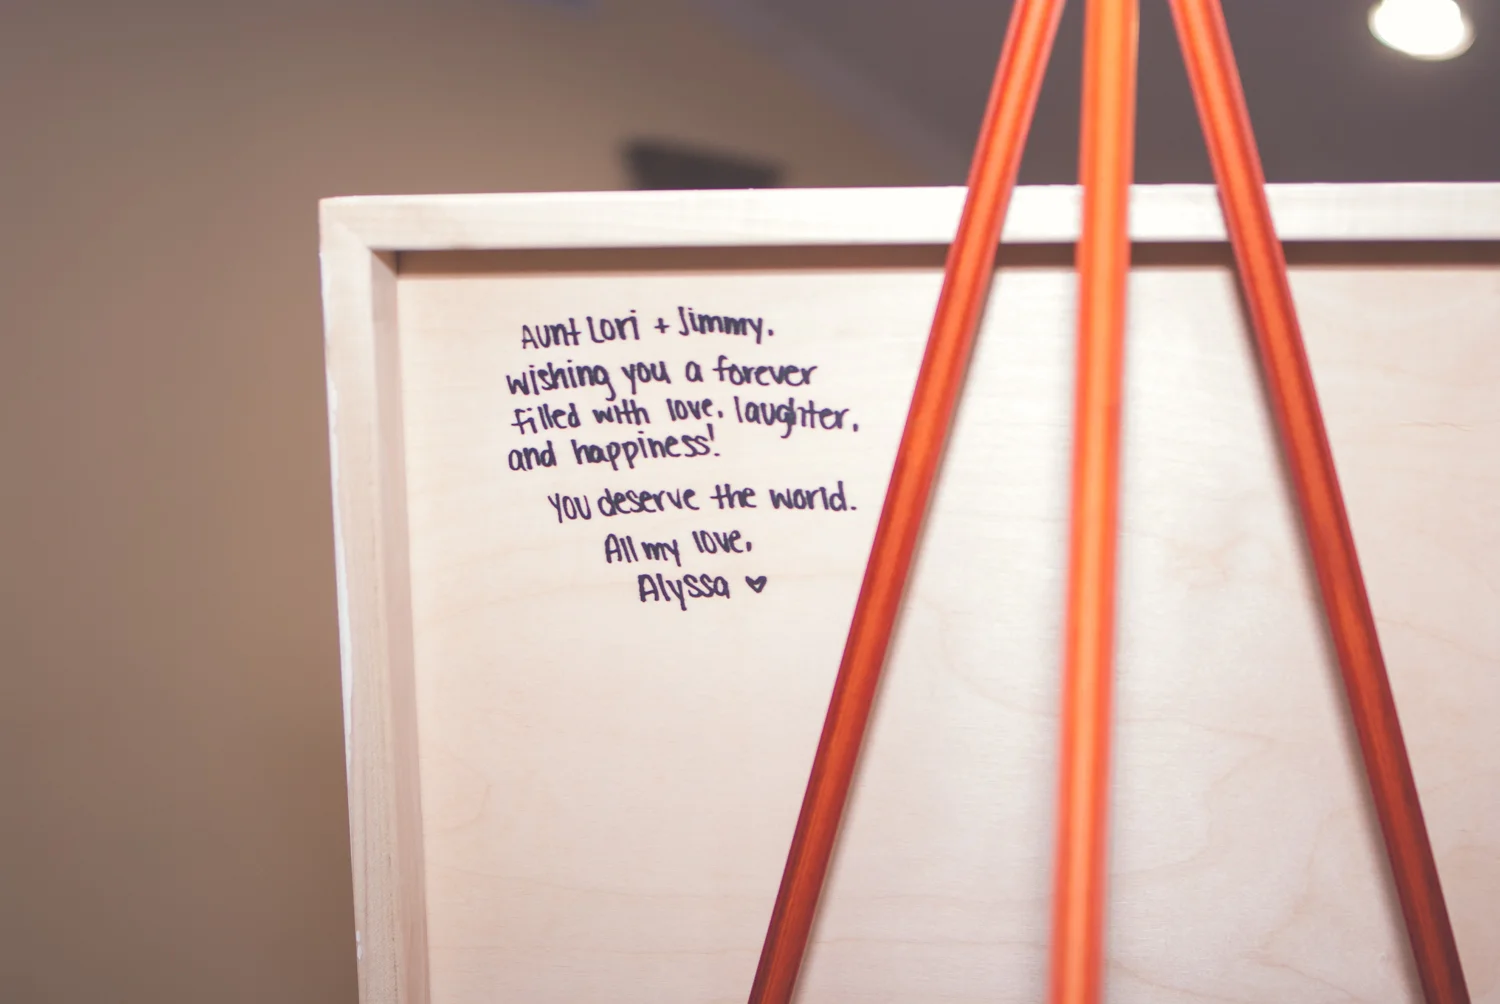 Aunt Lori + Jimmy,
wishing you a forever
filled with love, laughter,
and happiness!
You deserve the world.
All my love,
Alyssa ♥